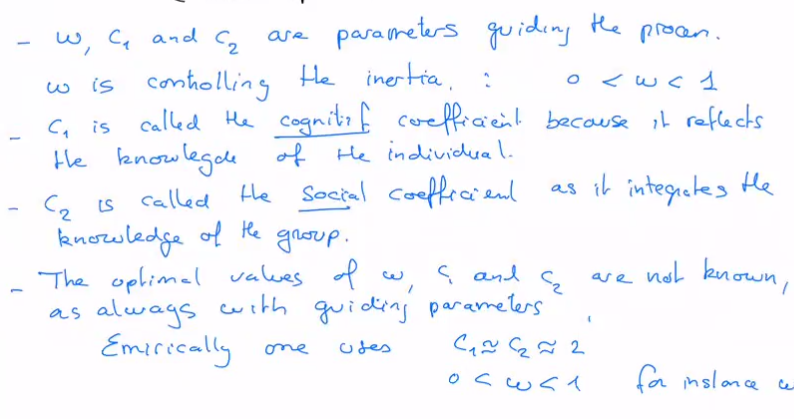 - ω, C₁ and C₂ are parameters guiding the process.
ω is controlling the inertia, : 0 < ω < 1
- C₁ is called the cognitif coefficient because it reflects
the knowlegde of the individual.
- C₂ is called the social coefficient as it integrates the
knowledge of the group.
- The optimal values of ω, C₁ and C₂ are not known,
as always with guiding parameters,
Emirically one uses C₁ ≈ C₂ ≈ 2
0 < ω < 1 for instance ω